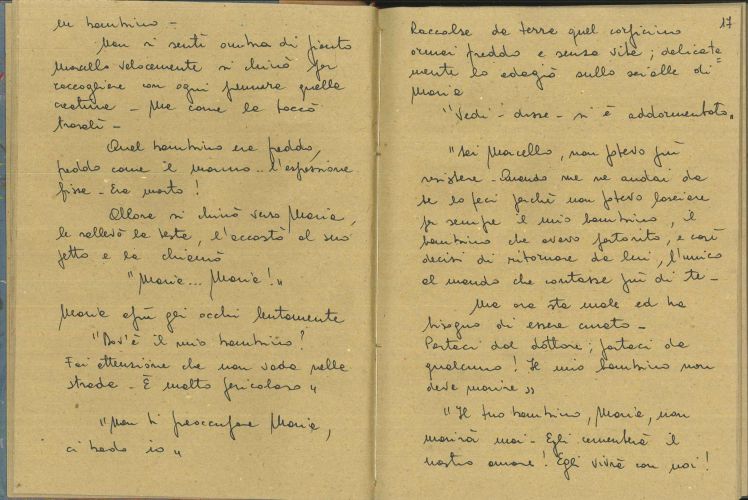 un bambino -
Non si sentì ombra di pianto
Marcello velocemente si chinò per
raccogliere con ogni premura quella
creatura - Ma come la toccò
trasalì -
Quel bambino era freddo,
freddo come il marmo .. l'espressione
fissa - Era morto !
Allora si chinò verso Maria,
le sollevò la testa, l'accostò al suo
petto e la chiamò
"Maria ... Maria !„
Maria aprì gli occhi lentamente
"Dov'è il mio bambino ?
Fai attenzione che non vada nella
strada - È molto pericoloso „
"Non ti preoccupare Maria,
ci bado io „
17
Raccolse da terra quel corpicino
ormai freddo e senza vita ; delicata=
mente lo adagiò sullo scialle di
Maria
"Vedi - disse - si è addormentato„
"Sai Marcello, non potevo più
resistere - Quando me ne andai da
te lo feci perchè non potevo lasciare
per sempre il mio bambino, il
bambino che avevo partorito, e così
decisi di ritornare da lui, l'unico
al mondo che contasse più di te -
Ma ora sta male ed ha
bisogno di essere curato -
Portaci dal dottore ; portaci da
qualcuno ! Il mio bambino non
deve morire „
"Il tuo bambino, Maria, non
morirà mai - Egli cementerà il
nostro amore ! Egli vivrà con noi !